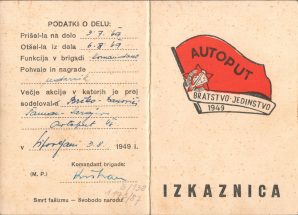 PODATKI O DELU:
Prišel-la na delo 3. 7. 49
Otšel-la iz dela 6. 8. 49
Funkcija v brigadi komandant
Pohvale in nagrade
udarnik
Večje akcije v katerih je prej
sodeloval
Samac Sarajevo
Autoput
v 3. 8. 1949 l.
Komandant brigade:
(M. P.)
Smrt fašizmu — Svobodo narodu!
AUTOPUT
BRATSTVO-JEDINSTVO
1949
IZKAZNICA